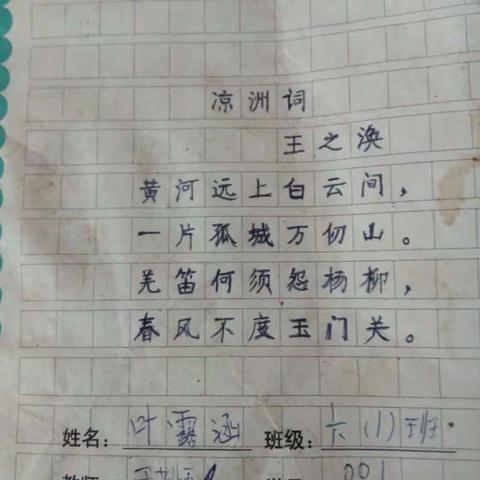 凉洲词
王之涣
黄河远上白云间，
一片孤城万仞山。
羌笛何须怨杨柳，
春风不度玉门关。
姓名：叶露涵 班级：六（1）班
001